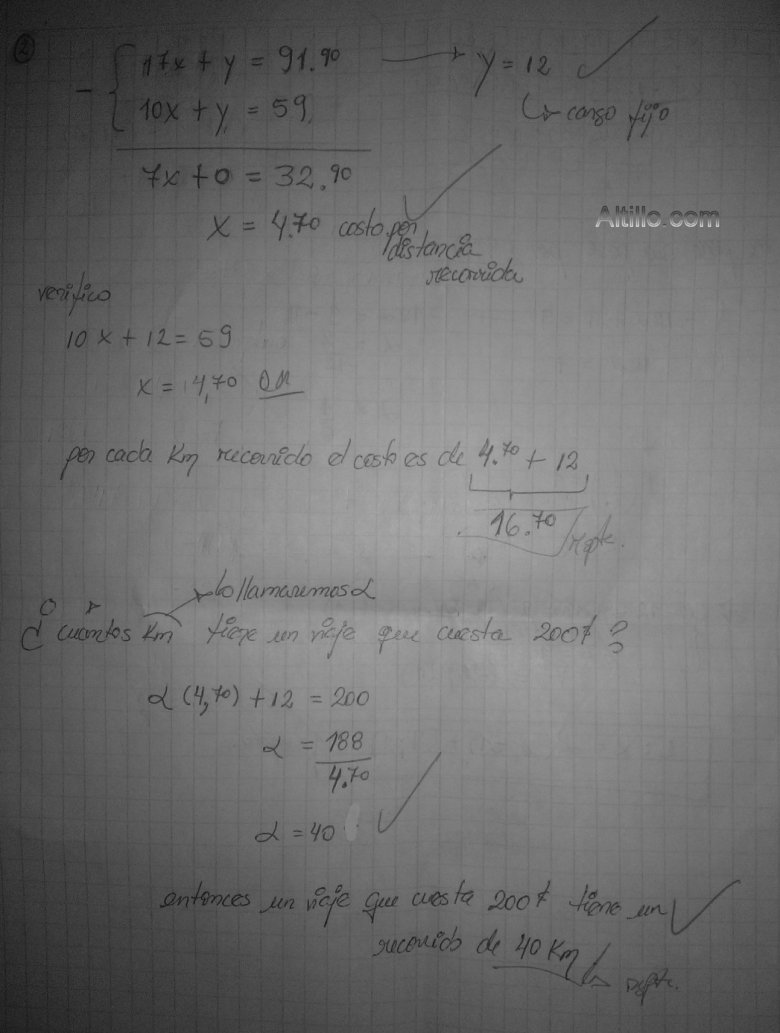 2
17x + y = 91.90 → y = 12
- { 10x + y = 59 ↳ cargo fijo
7x + 0 = 32.90
x = 4.70 costo por
distancia
recorrida
Altillo.com
verifico
10x + 12 = 59
x = 4,70
por cada Km recorrido el costo es de 4.70 + 12
16.70
lo llamaremos α
¿cuantos Km tiene un viaje que cuesta 200$?
α (4,70) + 12 = 200
α = 188
4.70
α = 40
entonces un viaje que cuesta 200$ tiene un
recorrido de 40 Km